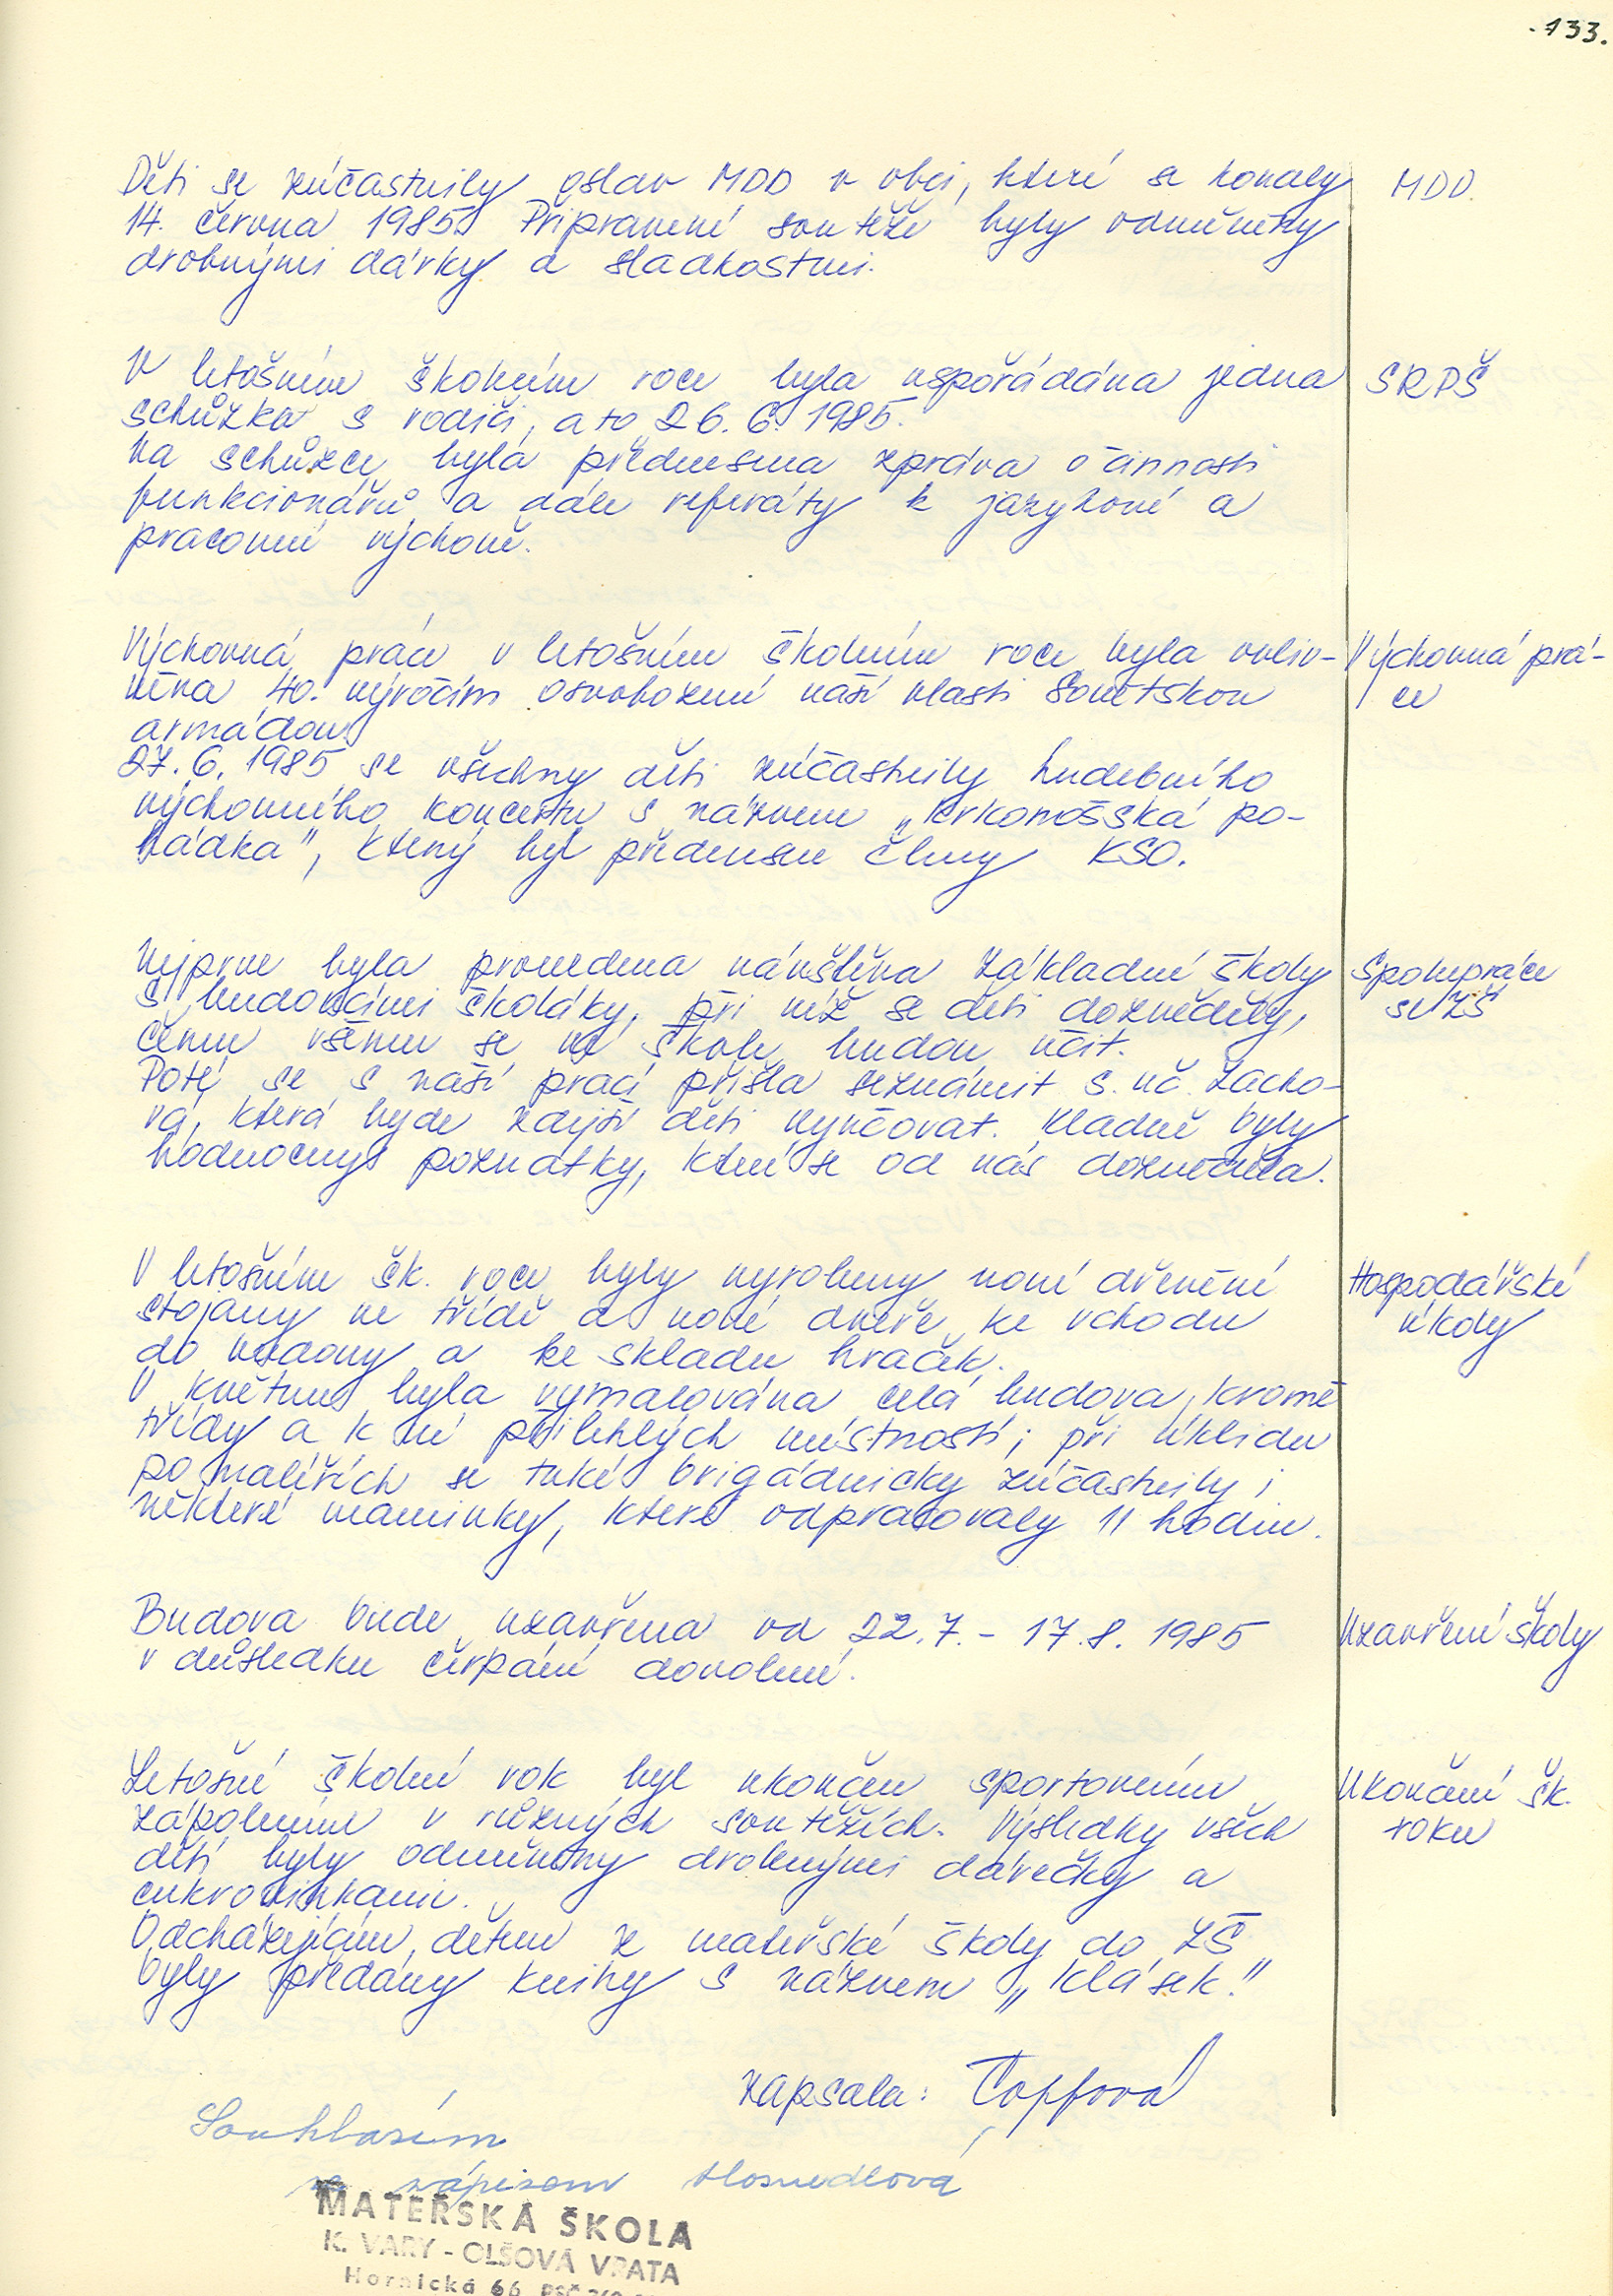 . 133.
Děti se zúčastnily oslav MDD v obci, které se konaly
MDD.
14. června 1985. Připravené soutěže byly odměněny
drobnými dárky a sladkostmi.
V letošním školním roce byla uspořádána jedna
SRPŠ
schůzka s rodiči, a to 26. 6. 1985.
Na schůzce byla přednesena zpráva o činnosti
funkcionářů a dále referáty k jazykové a
pracovní výchově.
Výchovná práce v letošním školním roce byla ovliv-
Výchovná prá-
něna 40. výročím osvobození naší vlasti Sovětskou
ce
armádou.
27. 6. 1985 se všechny děti zúčastnily hudebního
výchovného koncertu s názvem „Krkonošská po-
hádka", který byl přednesen členy KSO.
Nejprve byla provedena návštěva základní školy
Spolupráce
s budoucími školáky, při níž se děti dozvěděly,
se ZŠ
čemu všemu se ve škole budou učit.
Poté se s naší prací přišla seznámit s. uč. Zacho-
vá, která bude zdejší děti vyučovat. Kladně byly
hodnoceny poznatky, které se od nás dozvěděla.
V letošním šk. roce byly vyrobeny nové dřevěné
Hospodářské
stojany ve třídě a nové dveře ke vchodu
úkoly
do budovy a ke skladu hraček.
V květnu byla vymalována celá budova, kromě
třídy a k ní přilehlých místností; při úklidu
po malířích se také brigádnicky zúčastnily i
některé maminky, které odpracovaly 11 hodin.
Budova bude uzavřena od 22.7. - 17.8. 1985
Uzavření školy
v důsledku čerpání dovolené.
Letošní školní rok byl ukončen sportovním
Ukončení šk.
zápolením v různých soutěžích. Výsledky všech
roku
dětí byly odměněny drobnými dárečky a
cukrovinkami.
Odcházejícím dětem z mateřské školy do ZŠ
byly předány knihy s názvem „Klásek."
zapsala: Topfová
Souhlasím
se zápisem Hosnedlová
MATEŘSKÁ ŠKOLA
K. VARY - OLŠOVÁ VRATA
Hornická 66 PSČ